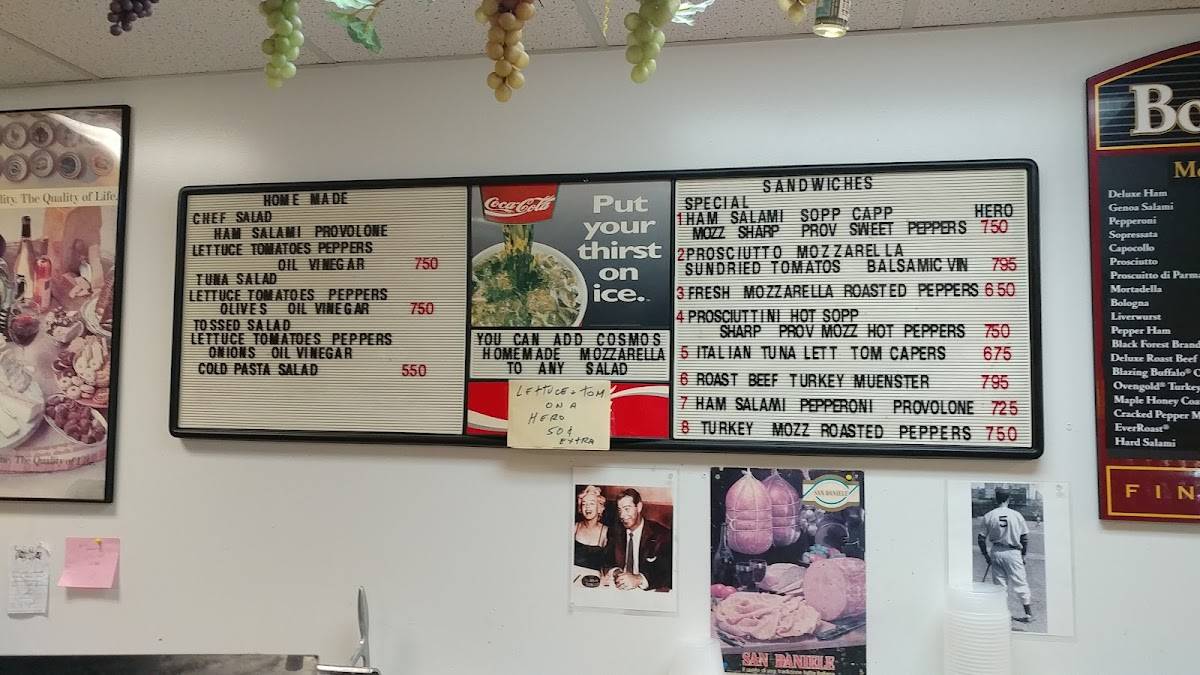 lity. The Quality of Life.
The Quality of
HOME MADE
CHEF SALAD
HAM SALAMI PROVOLONE
LETTUCE TOMATOES PEPPERS
OIL VINEGAR 750
TUNA SALAD
LETTUCE TOMATOES PEPPERS
OLIVES OIL VINEGAR 750
TOSSED SALAD
LETTUCE TOMATOES PEPPERS
ONIONS OIL VINEGAR
COLD PASTA SALAD 550
Coca-Cola
Put
your
thirst
on
ice.
YOU CAN ADD COSMOS
HOMEMADE MOZZARELLA
TO ANY SALAD
LETTUCE + TOM
ON A
HERO
50¢
EXTRA
SANDWICHES
SPECIAL
1 HAM SALAMI SOPP CAPP HERO
MOZZ SHARP PROV SWEET PEPPERS 750
2 PROSCIUTTO MOZZARELLA
SUNDRIED TOMATOS BALSAMIC VIN 795
3 FRESH MOZZARELLA ROASTED PEPPERS 650
4 PROSCIUTTINI HOT SOPP
SHARP PROV MOZZ HOT PEPPERS 750
5 ITALIAN TUNA LETT TOM CAPERS 675
6 ROAST BEEF TURKEY MUENSTER 795
7 HAM SALAMI PEPPERONI PROVOLONE 725
8 TURKEY MOZZ ROASTED PEPPERS 750
Bo
Me
Deluxe Ham
Genoa Salami
Pepperoni
Sopressata
Capocollo
Prosciutto
Proscuitto di Parma
Mortadella
Bologna
Liverwurst
Pepper Ham
Black Forest Brand
Deluxe Roast Beef
Blazing Buffalo® C
Ovengold® Turkey
Maple Honey Coa
Cracked Pepper M
EverRoast®
Hard Salami
FIN
SAN DANIELE
SAN DANIELE
5